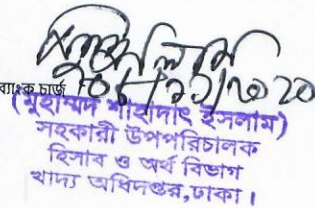 ব্যাংক চার্জ
(মুহাম্মদ শাহাদাৎ ইসলাম)
সহকারী উপপরিচালক
হিসাব ও অর্থ বিভাগ
খাদ্য অধিদপ্তর,ঢাকা।